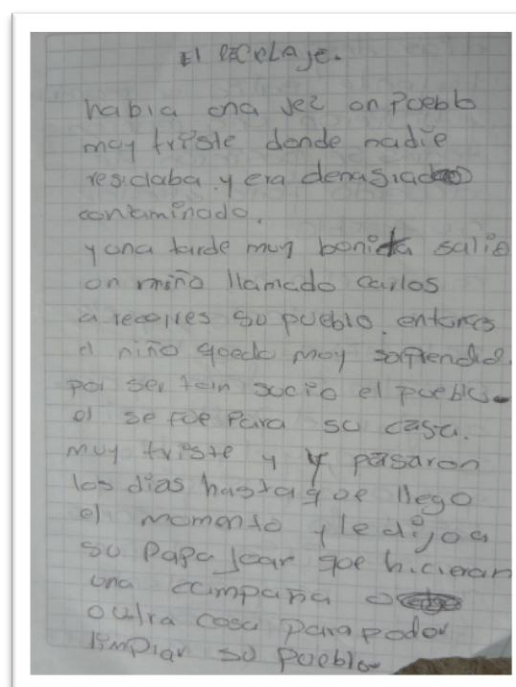 El RECiclAje.
habia ona vez on Poeblo
muy triste donde nadie
resiclaba y era demasiado
contaminado.
y ona tarde muy bonita salio
on niño llamado carlos
a recorres so pueblo. entonces
el niño quedo moy sorprendido
por ser tan sucio el pueblo.
el se foe para su casa.
muy triste y y pasaron
los dias hasta qoe llego
el momento y le dijo a
so papa joan qoe hicieran
una campaña o
outra cosa para poder
limpiar so pueblo